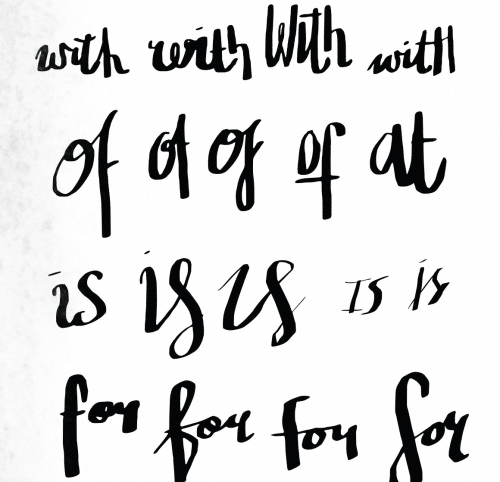 with with With with
of of of of at
is is is IS is
for for for for